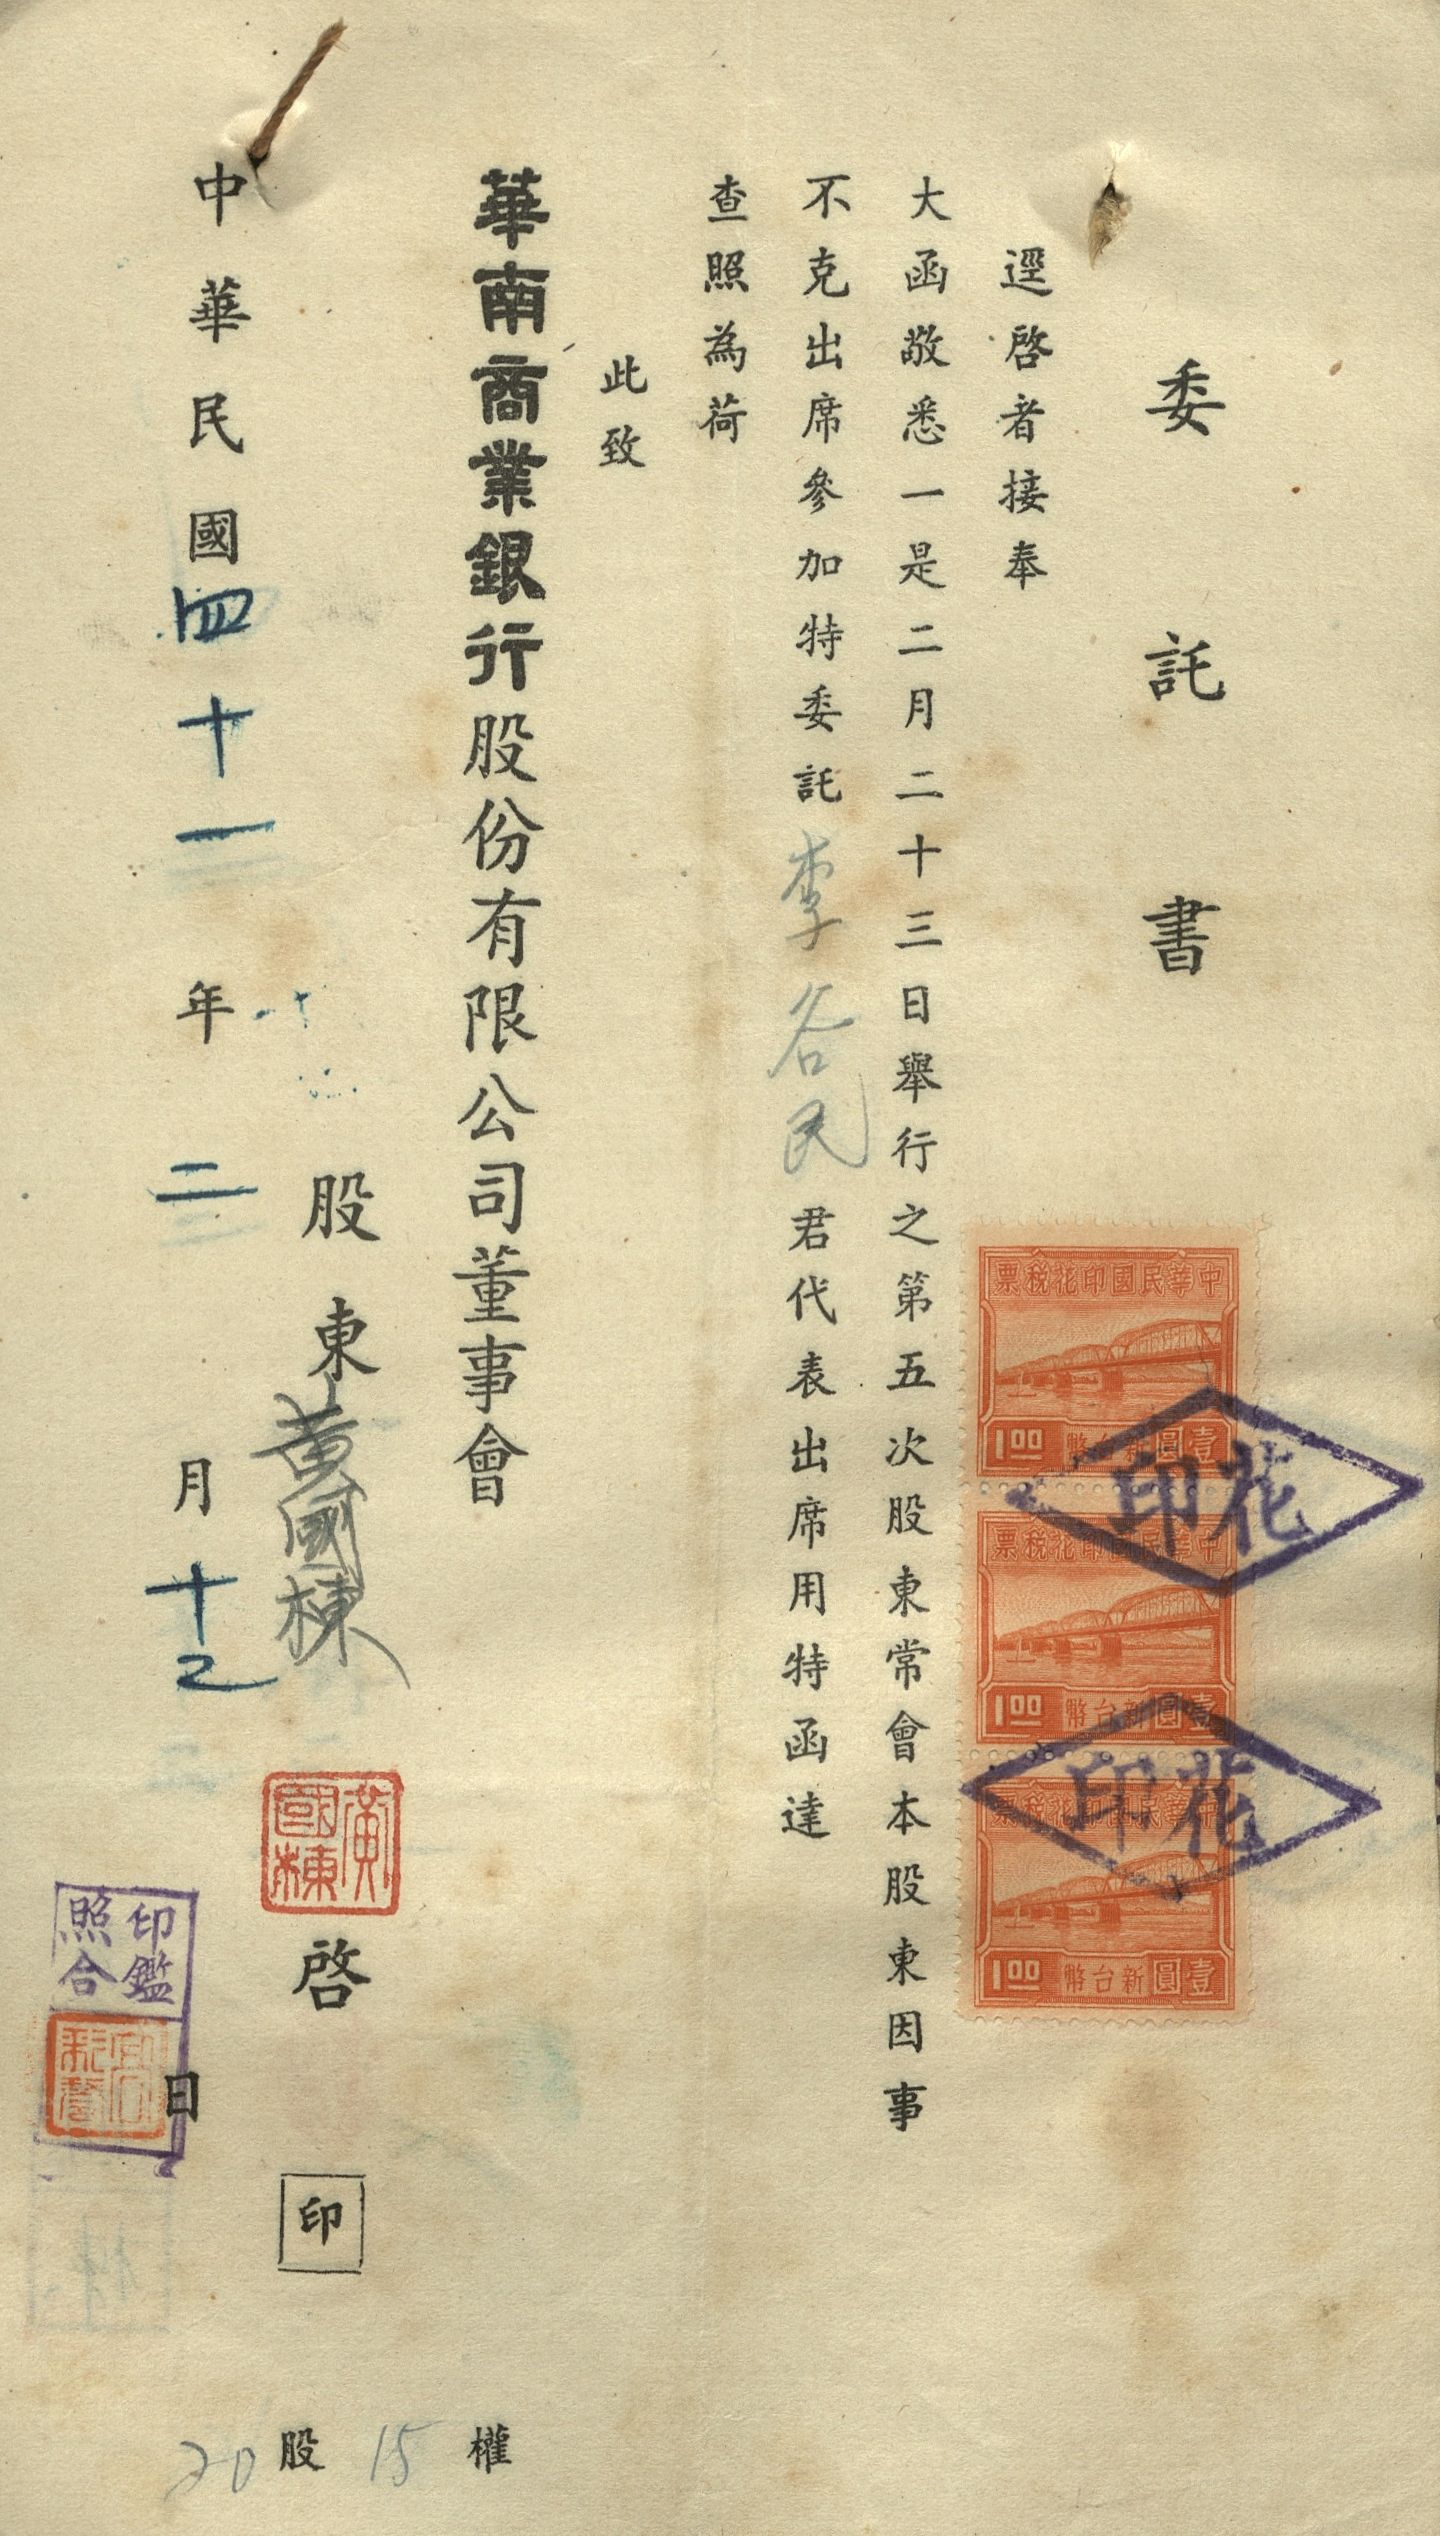 委託書
逕啓者接奉
大函敬悉一是二月二十三日舉行之第五次股東常會本股東因事
不克出席參加特委託李谷民君代表出席用特函達
查照為荷
此致
華南商業銀行股份有限公司董事會
股東黃國棟啓印
黃國棟
中華民國四十一年二月十二日
20股15權
印鑑照合
中華民國印花稅票
1.00 壹圓新台幣
中華民國印花稅票
1.00 壹圓新台幣
中華民國印花稅票
1.00 壹圓新台幣
花印
花印